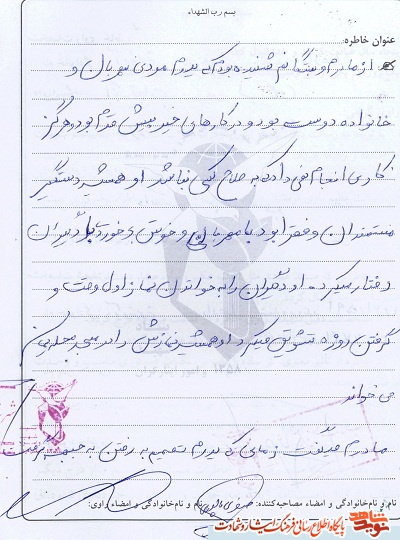 بسم رب الشهداء
عنوان خاطره:
از مادرم و بستگانم شنیده بودم که پدرم مردی مهربان و
خانواده دوست بود و در کارهای خیر پیش قدم بود و هرگز
کاری انجام نمی داد که به صلاح کسی نباشد او همیشه دستگیر
مستمندان و فقرا بود با مهربانی و خوش برخورد با دیگران
رفتار میکرد. او دیگران را به خواندن نماز اول وقت و
گرفتن روزه تشویق میکرد او همیشه نمازش را در مسجد محله مان
می خواند
مادرم میگفت زمانی که پدرم تصمیم به رفتن به جبهه گرفت
نام و نام خانوادگی و امضاء مصاحبه کننده:
نام و نام خانوادگی و امضاء راوی:
۱۳۵۸
نوید شاهد
پایگاه اطلاع رسانی فرهنگ ایثار و شهادت